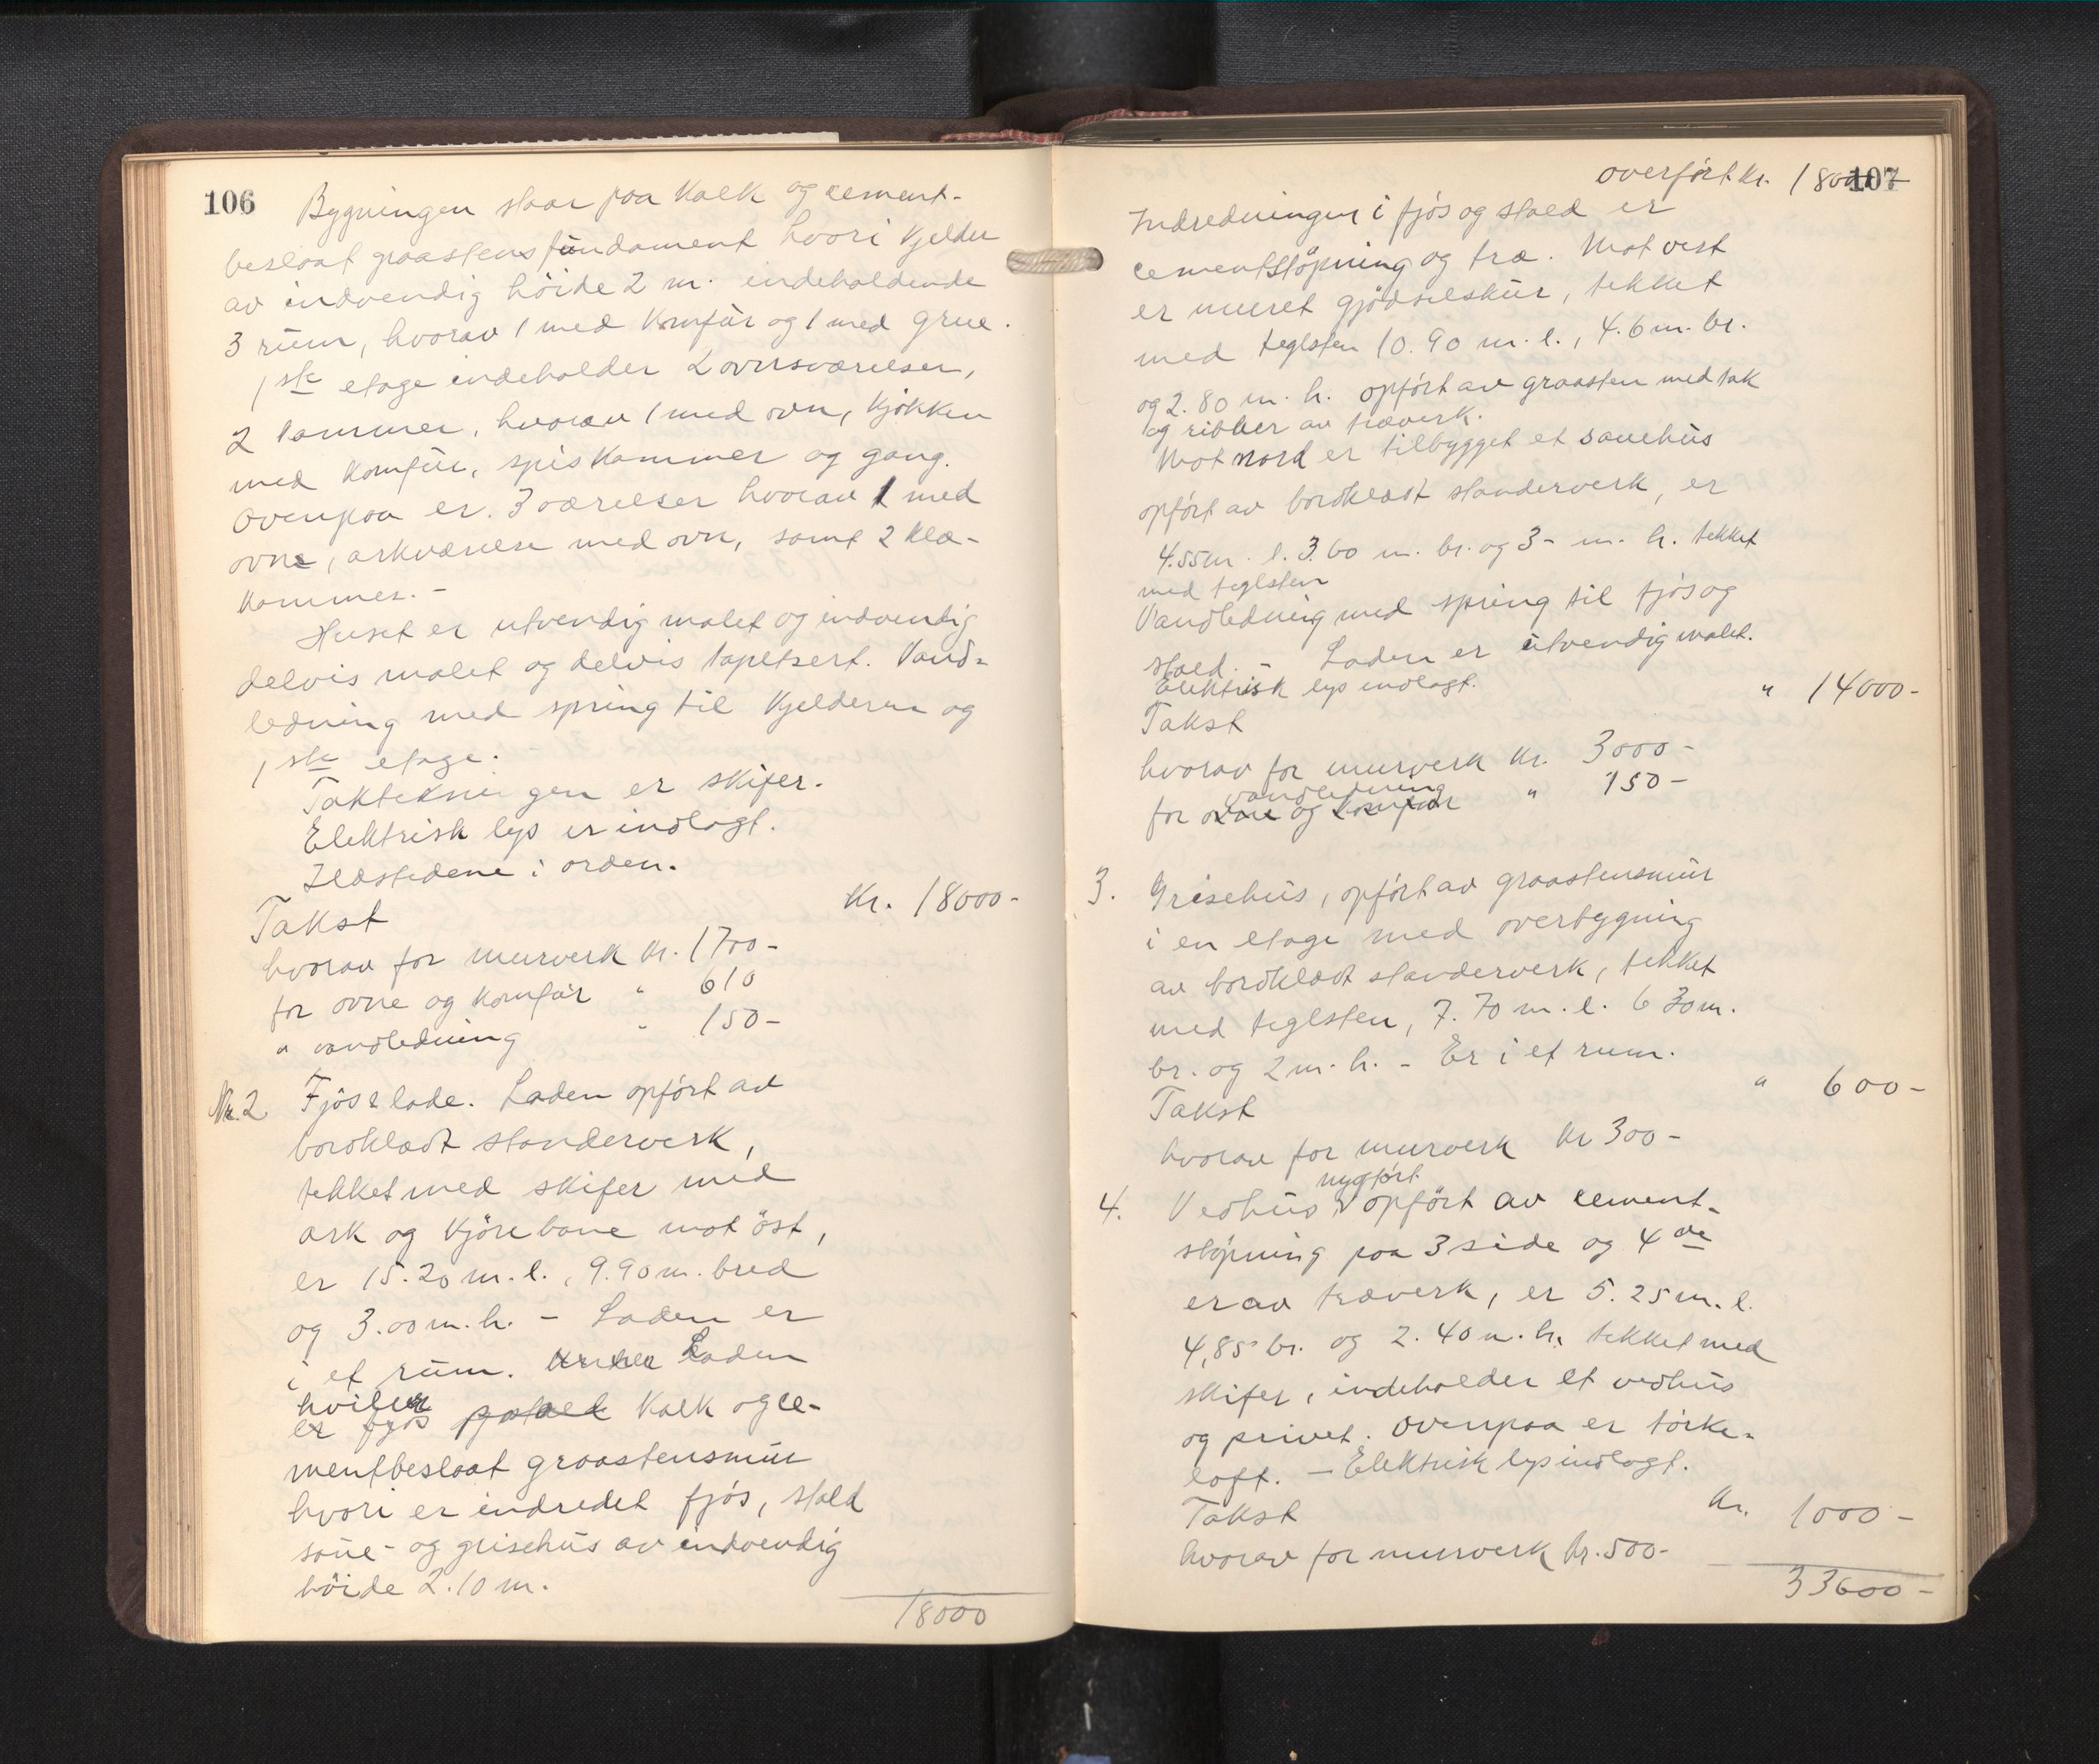 106
Bygningen staar paa Kalk og cement-
beslaat graastensfundament hvori Kjelder
av indvendig höide 2 m. indeholdende
3 rum, hvorav 1 med Komfur og 1 med grue.
1ste etage indeholder 2 ovnsværelser,
2 kammer, hvorav 1 med ovn, Kjøkken
med Komfur, spiskammer og gang.
Ovenpaa er 3 værelser hvorav 1 med
ovne, arkværelse med ovn, samt 2 klæ-
kammer. -
Huset er utvendig malet og indvendig
delvis malet og delvis tapetsert. Vand-
ledning med spring til Kjelderen og
1ste etage.
Taktekningen er skifer.
Elektrisk lys er indlagt.
Ildstedene i orden.
Takst Kr. 18000-
hvorav for murverk Kr. 1700-
for ovne og Komfur " 610
" vandledning " 150-
Nr. 2 Fjös & lade. Laden opført av
bordklædt stenderverk,
tekket med skifer med
ark og Kjörebane mot öst,
er 15.20 m. l., 9.90 m. bred
og 3.00 m. h. - Laden er
i et rum. Under Laden
hviler
er fjös paa Kalk og ce-
mentbeslaat graastensmur
hvori er indredet fjös, stald
saue- og grisehus av indvendig
höide 2.10 m.
18000
overført Kr. 18000-
107
Indredningen i fjøs og stald er
cementstöpning og træ. Mot vest
er muret gjödselskur, tekket
med teglsten 10.90 m. l., 4.6 m. br.
og 2.80 m. h. opført av graasten med tak
og ribber av træverk.
Mot nord er tilbygget et sauehus
opført av bordklædt stenderverk, er
4.55 m. l. 3.60 m. br. og 3- m. h. tekket
med teglsten
Vandledning med spring til fjös og
stald. - Laden er utvendig malet.
Elektrisk lys indlagt.
Takst " 14000-
hvorav for murverk Kr. 3000-
vandledning
for ovne og Komfur " 150-
3. Grisehus, opført av graastensmur
i en etage med overbygning
av bordklædt stenderverk, tekket
med teglsten, 7.70 m. l. 6 30 m.
br. og 2 m. h. - Er i et rum.
Takst " 600-
hvorav for murverk Kr 300-
nyoført
4. Vedhus opfört av cement-
stöpning paa 3 side og 4de
er av træverk, er 5.25 m. l.
4,85 br. og 2.40 m. h. tekket med
skifer, indeholder et vedhus
og privet. Ovenpaa er tørke-
loft. - Elektrisk lys indlagt.
Takst Kr. 1000-
hvorav for murverk Kr. 500-
33600-